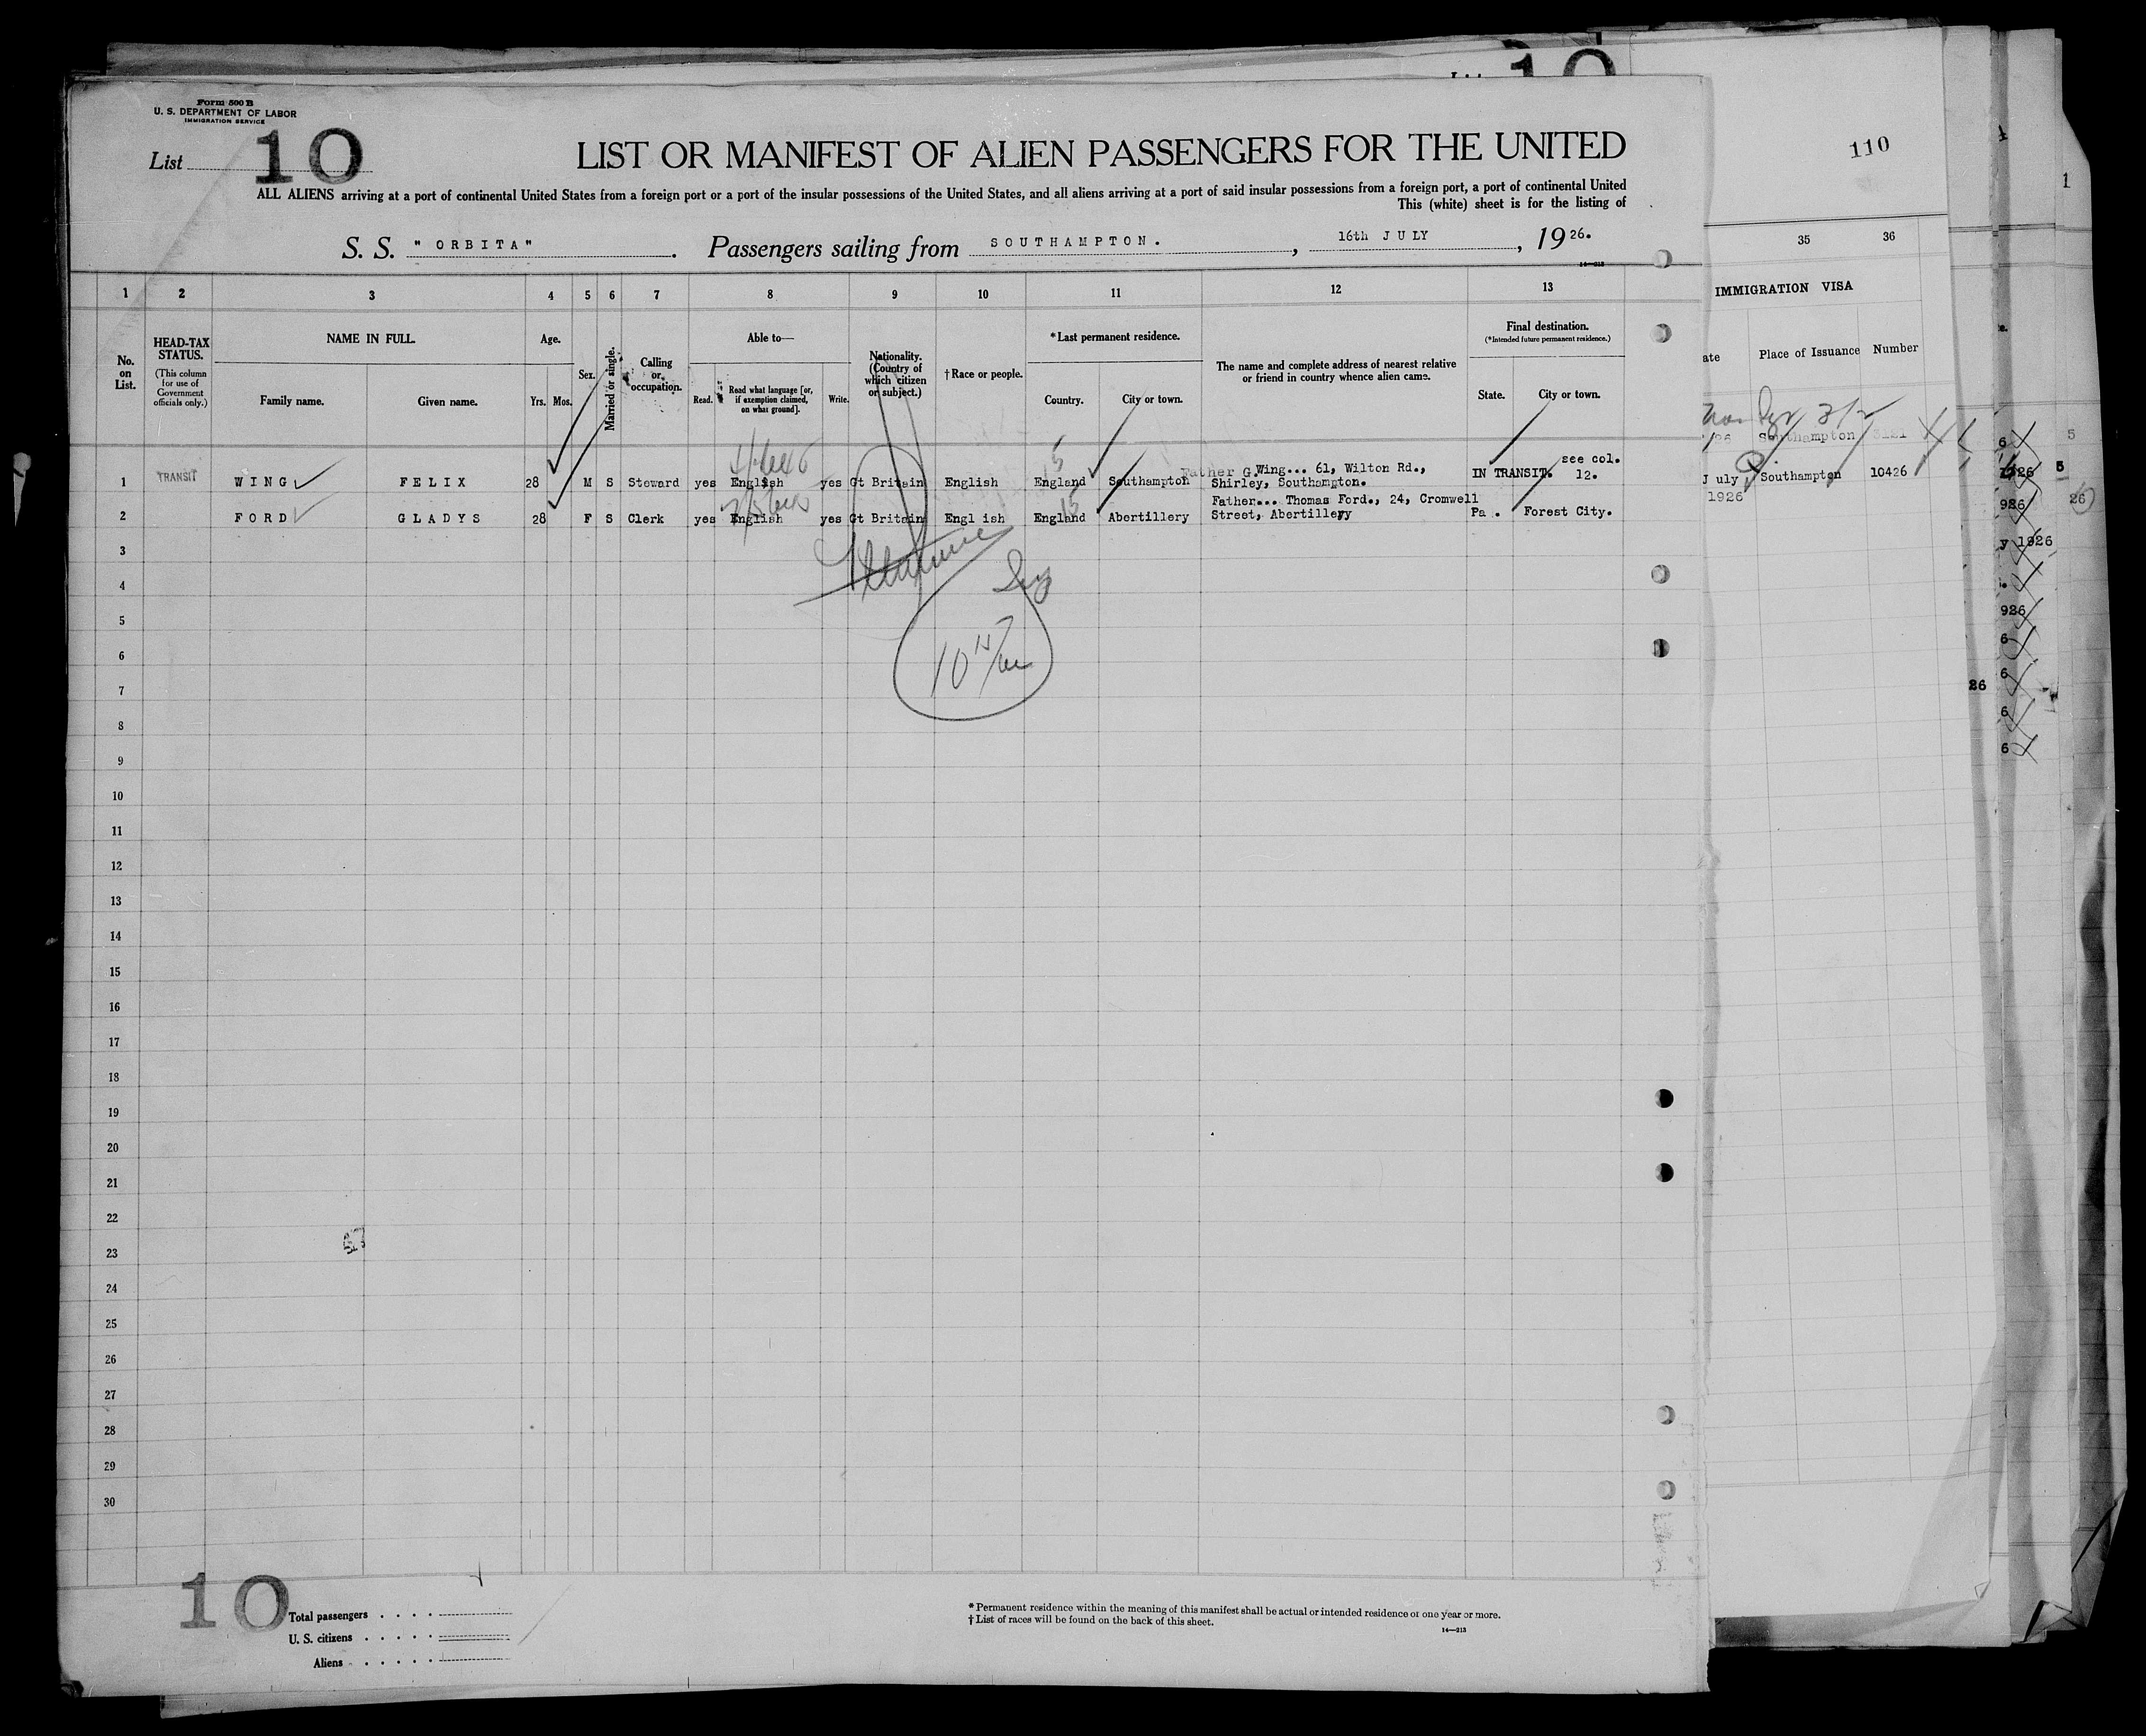 Form 500 B
U. S. DEPARTMENT OF LABOR
IMMIGRATION SERVICE
List 10
LIST OR MANIFEST OF ALIEN PASSENGERS FOR THE UNITED
ALL ALIENS arriving at a port of continental United States from a foreign port or a port of the insular possessions of the United States, and all aliens arriving at a port of said insular possessions from a foreign port, a port of continental United
This (white) sheet is for the listing of
S. S. "ORBITA". Passengers sailing from SOUTHAMPTON., 16th JULY, 1926.
14—213
1 2 3 4 5 6 7 8 9 10 11 12 13
No. on List.
HEAD-TAX STATUS.
(This column for use of Government officials only.)
NAME IN FULL.
Family name. Given name.
Age.
Yrs. Mos.
Sex.
Married or single.
Calling or occupation.
Able to—
Read. Read what language [or, if exemption claimed, on what ground]. Write.
Nationality. (Country of which citizen or subject.)
†Race or people.
*Last permanent residence.
Country. City or town.
The name and complete address of nearest relative or friend in country whence alien came.
Final destination.
(*Intended future permanent residence.)
State. City or town.
1 TRANSIT WING FELIX 28 M S Steward yes English yes Gt Britain English England Southampton Father G.Wing... 61, Wilton Rd., Shirley, Southampton. IN TRANSIT. see col. 12.
2 FORD GLADYS 28 F S Clerk yes English yes Gt Britain Engl ish England Abertillery Father... Thomas Ford., 24, Cromwell Street, Abertillery Pa. Forest City.
3
4
5
6
7
8
9
10
11
12
13
14
15
16
17
18
19
20
21
22
23
24
25
26
27
28
29
30
10
Total passengers
U. S. citizens
Aliens
*Permanent residence within the meaning of this manifest shall be actual or intended residence of one year or more.
†List of races will be found on the back of this sheet.
14—213
10
110
35 36
IMMIGRATION VISA
ate Place of Issuance Number
Southampton
July 1926 Southampton 10426
1
5
6
26
986
y 1926
986
6
6
26
6
6